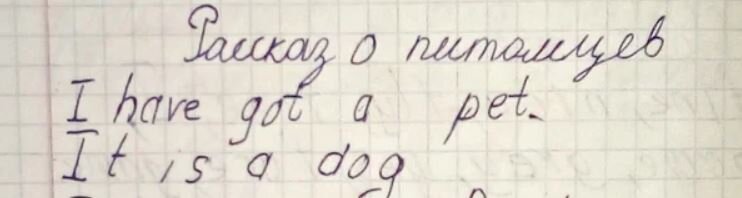 Рассказ о питомцев
I have got a pet.
It is a dog